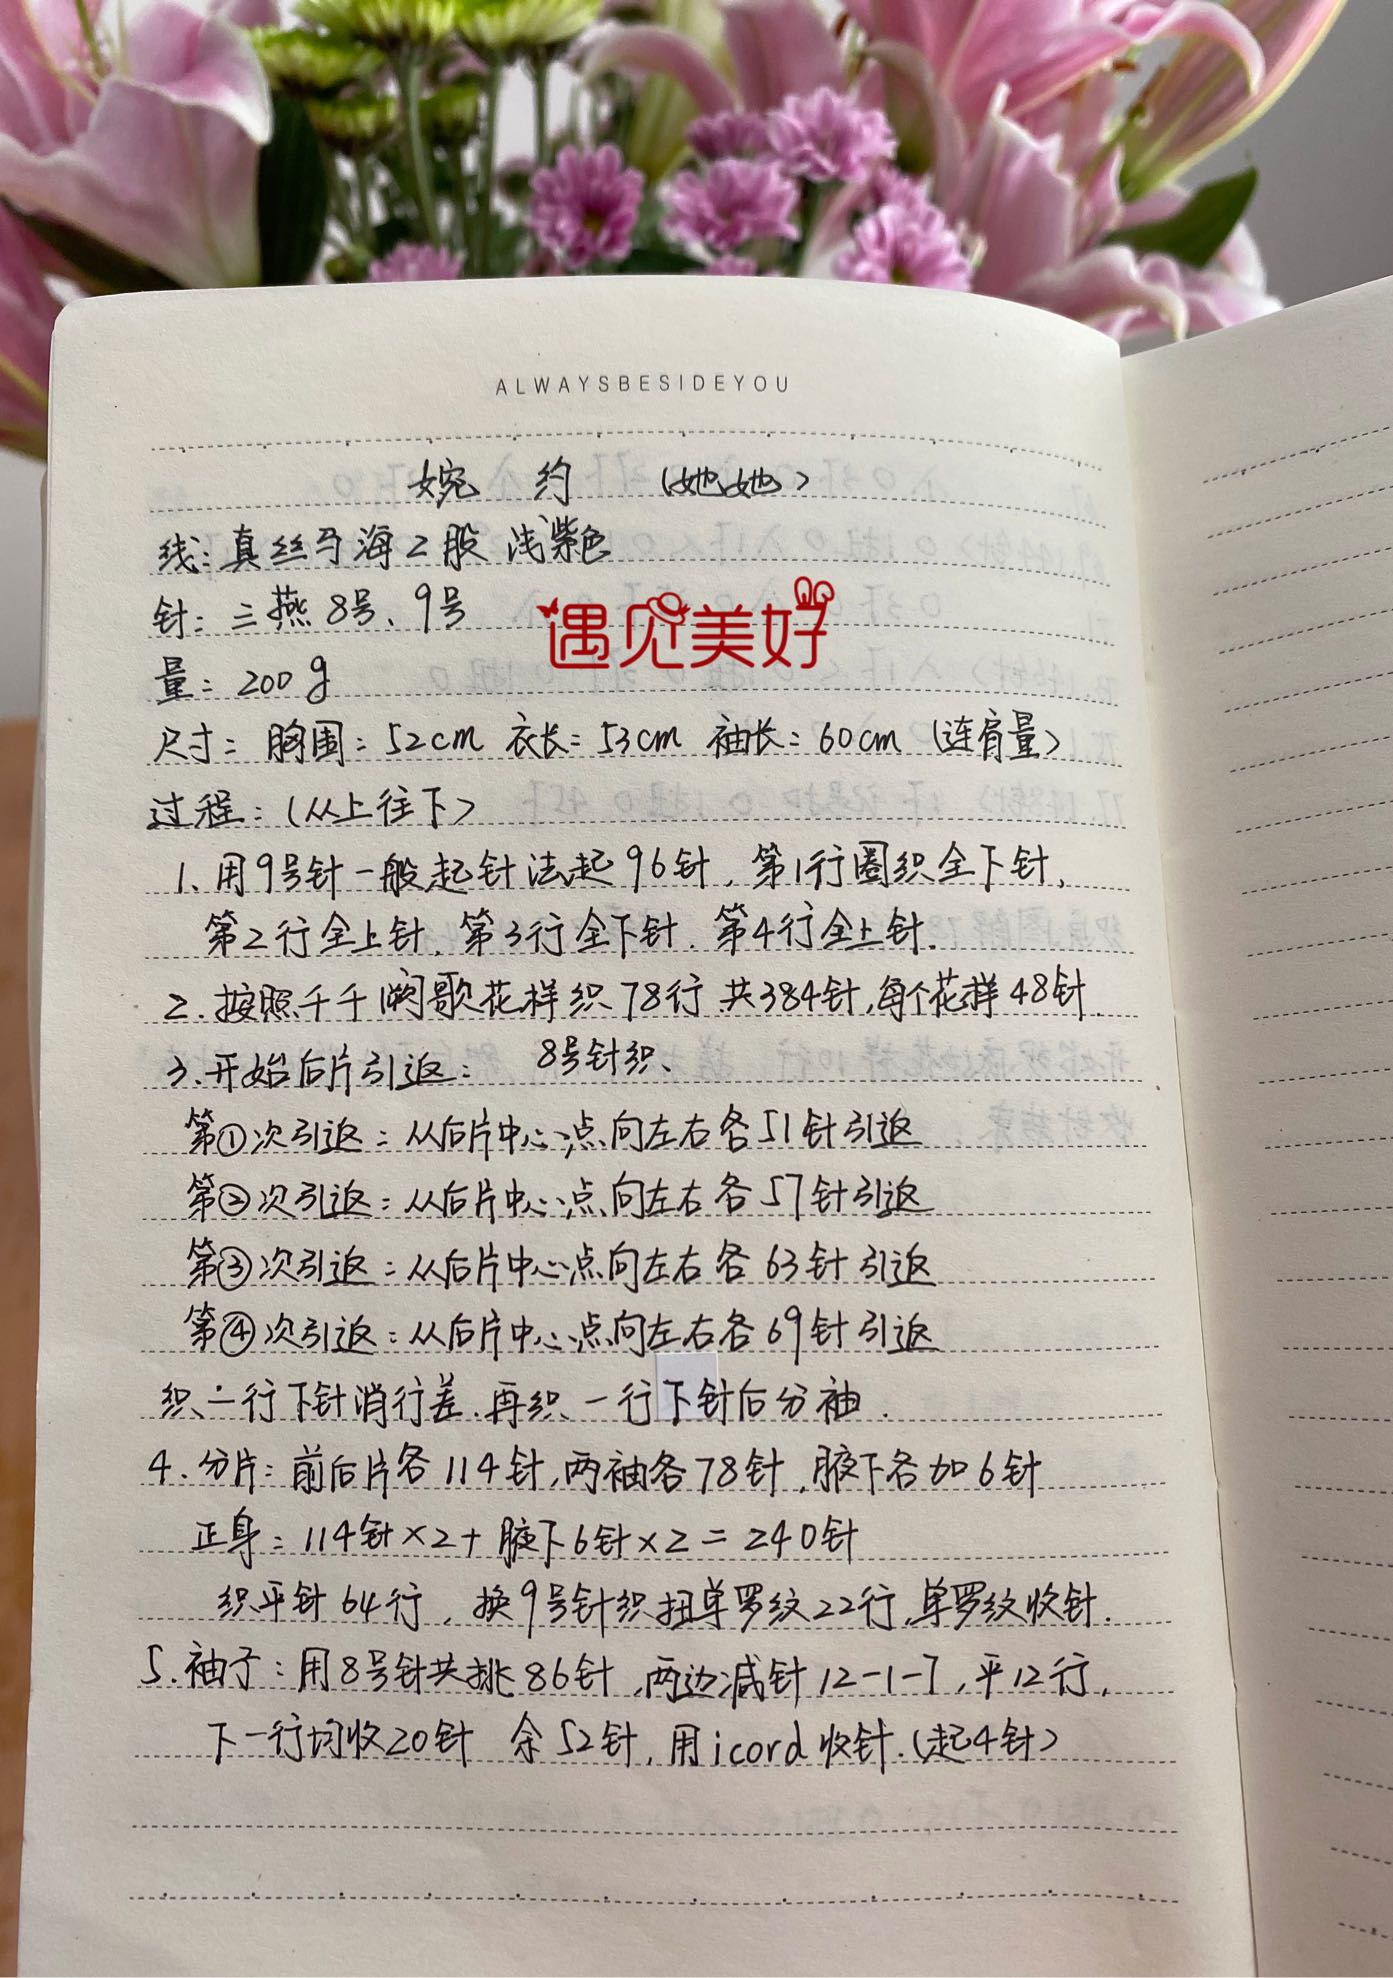 ALWAYSBESIDEYOU
婉约 (她她)
线:真丝马海2股 浅紫色
针:三燕8号、9号
遇见美好
量:200g
尺寸:胸围:52cm 衣长:53cm 袖长:60cm (连肩量)
过程:(从上往下)
1、用9号针一般起针法起96针,第1行圈织全下针,
第2行全上针,第3行全下针.第4行全上针.
2.按照千千阙歌花样织78行 共384针,每个花样48针.
3.开始后片引返: 8号针织、
第①次引返:从后片中心点向左右各51针引返
第②次引返:从后片中心点向左右各57针引返
第③次引返:从后片中心点向左右各63针引返
第④次引返:从后片中心点向左右各69针引返
织一行下针消行差.再织一行下针后分袖.
4.分片:前后片各114针,两袖各78针,腋下各加6针
正身:114针×2+腋下6针×2=240针
织平针64行,换9号针织扭单罗纹22行,单罗纹收针.
5.袖子:用8号针共挑86针,两边减针12-1-7,平12行,
下一行均收20针 余52针,用icord收针.(起4针)